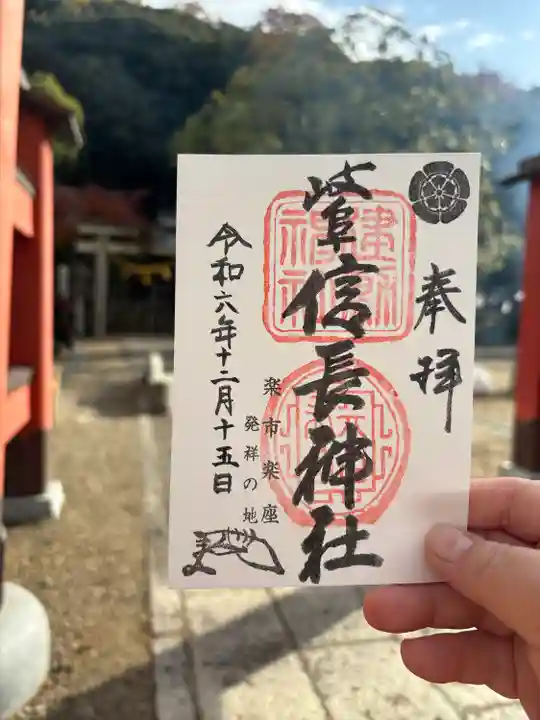 奉拝
岐阜信長神社
楽市楽座
発祥の地
令和六年十二月十五日